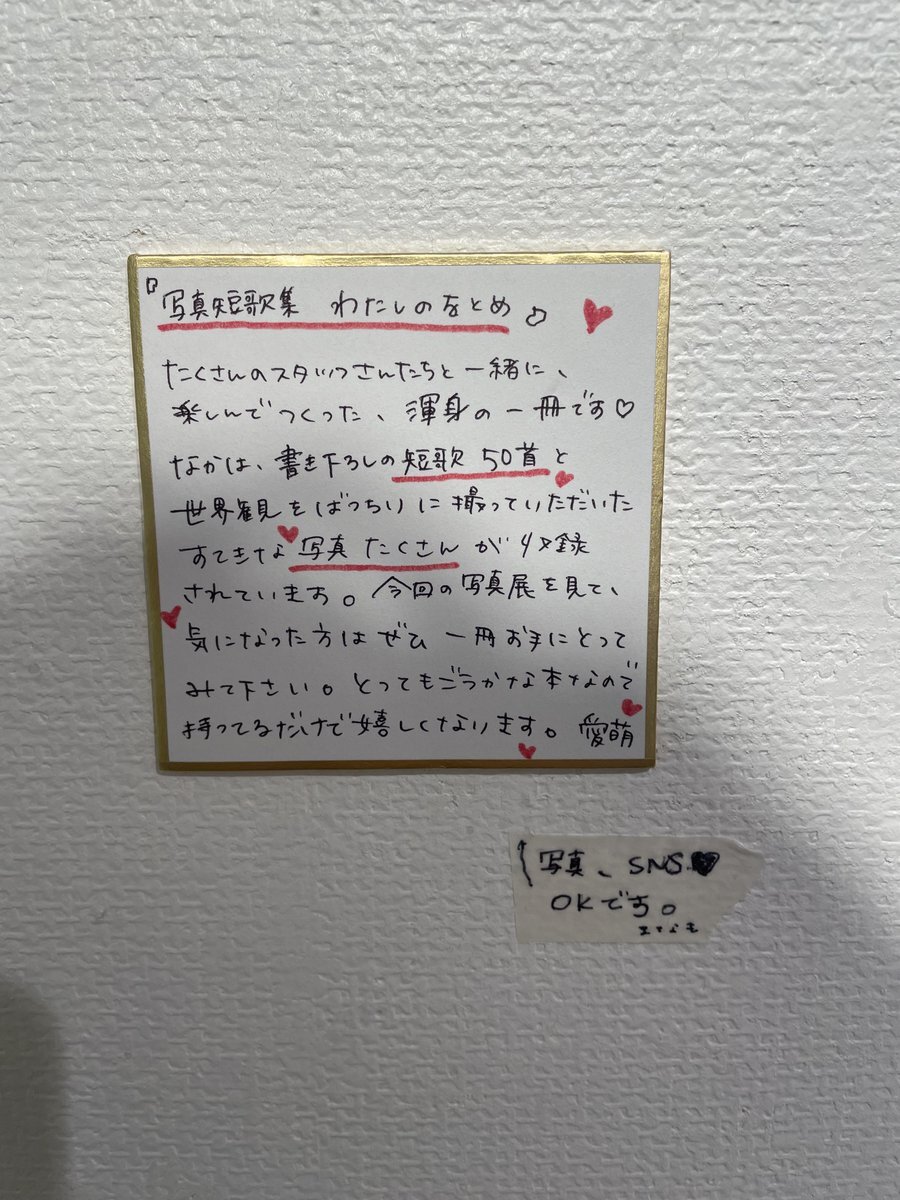 『写真短歌集 わたしのをとめ』
たくさんのスタッフさんたちと一緒に、
楽しんでつくった、渾身の一冊です♡
なかは、書き下ろしの短歌 50首と
世界観をばっちりに撮っていただいた
すてきな写真たくさんが収録
されています。今回の写真展を見て、
気になった方はぜひ一冊お手にとって
みて下さい。とってもごうかな本なので
持ってるだけで嬉しくなります。愛萌
写真、SNS♥
OKです。